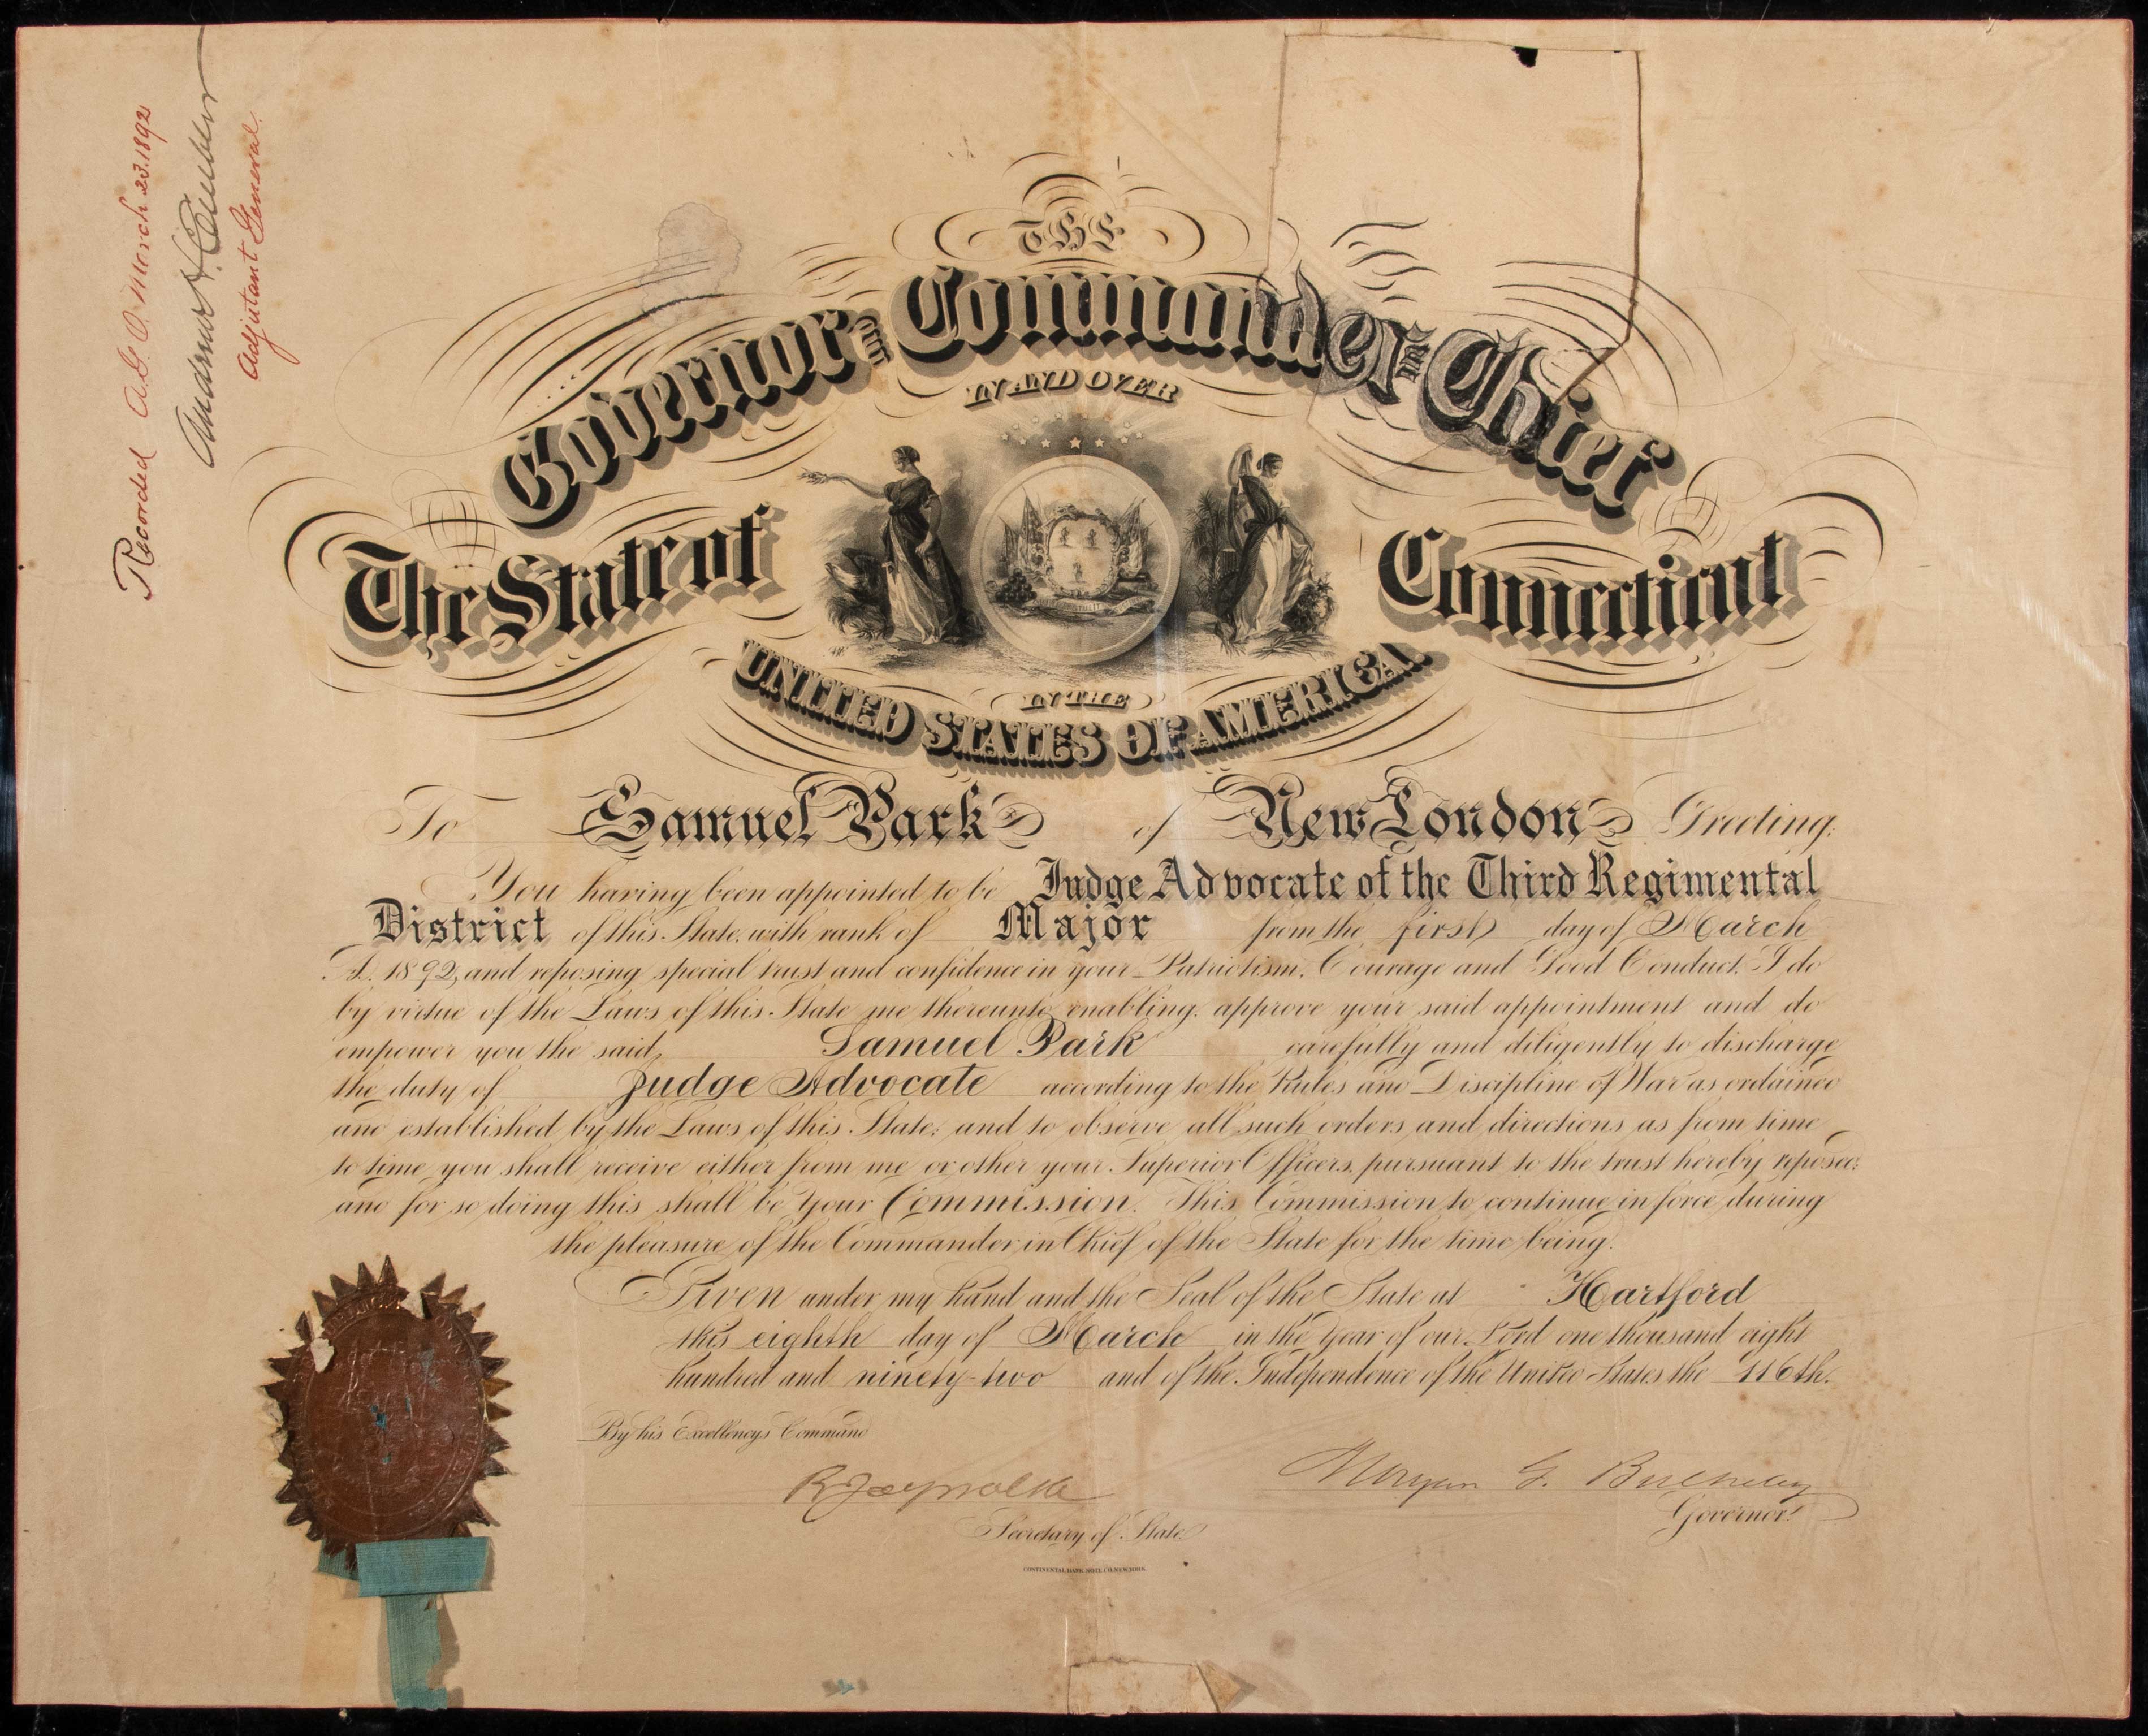 Recorded A.G.O. March 23. 1892
Andrew H. Embler
Adjutant General.
THE
Governor and Commander in Chief
IN AND OVER
The State of Connecticut
IN THE
UNITED STATES OF AMERICA.
To Samuel Park of New London Greeting:
You having been appointed to be Judge Advocate of the Third Regimental
District of this State, with rank of Major from the first day of March
A. 1892, and reposing special trust and confidence in your Patriotism, Courage and Good Conduct, I do
by virtue of the Laws of this State me thereunto enabling, approve your said appointment and do
empower you the said, Samuel Park carefully and diligently to discharge
the duty of Judge Advocate according to the Rules and Discipline of War as ordained
and established by the Laws of this State; and to observe all such orders and directions as from time
to time you shall receive either from me or other your Superior Officers, pursuant to the trust hereby reposed:
and for so doing this shall be Your Commission. This Commission to continue in force during
the pleasure of the Commander in Chief of the State for the time being.
Given under my hand and the Seal of the State at Hartford
this eighth day of March in the Year of our Lord one thousand eight
hundred and ninety-two and of the Independence of the United States the 116th.
By his Excellencys Command
R. J.
Morgan G. Bulkeley
Secretary of State
Governor.
CONTINENTAL BANK NOTE CO. NEW YORK.